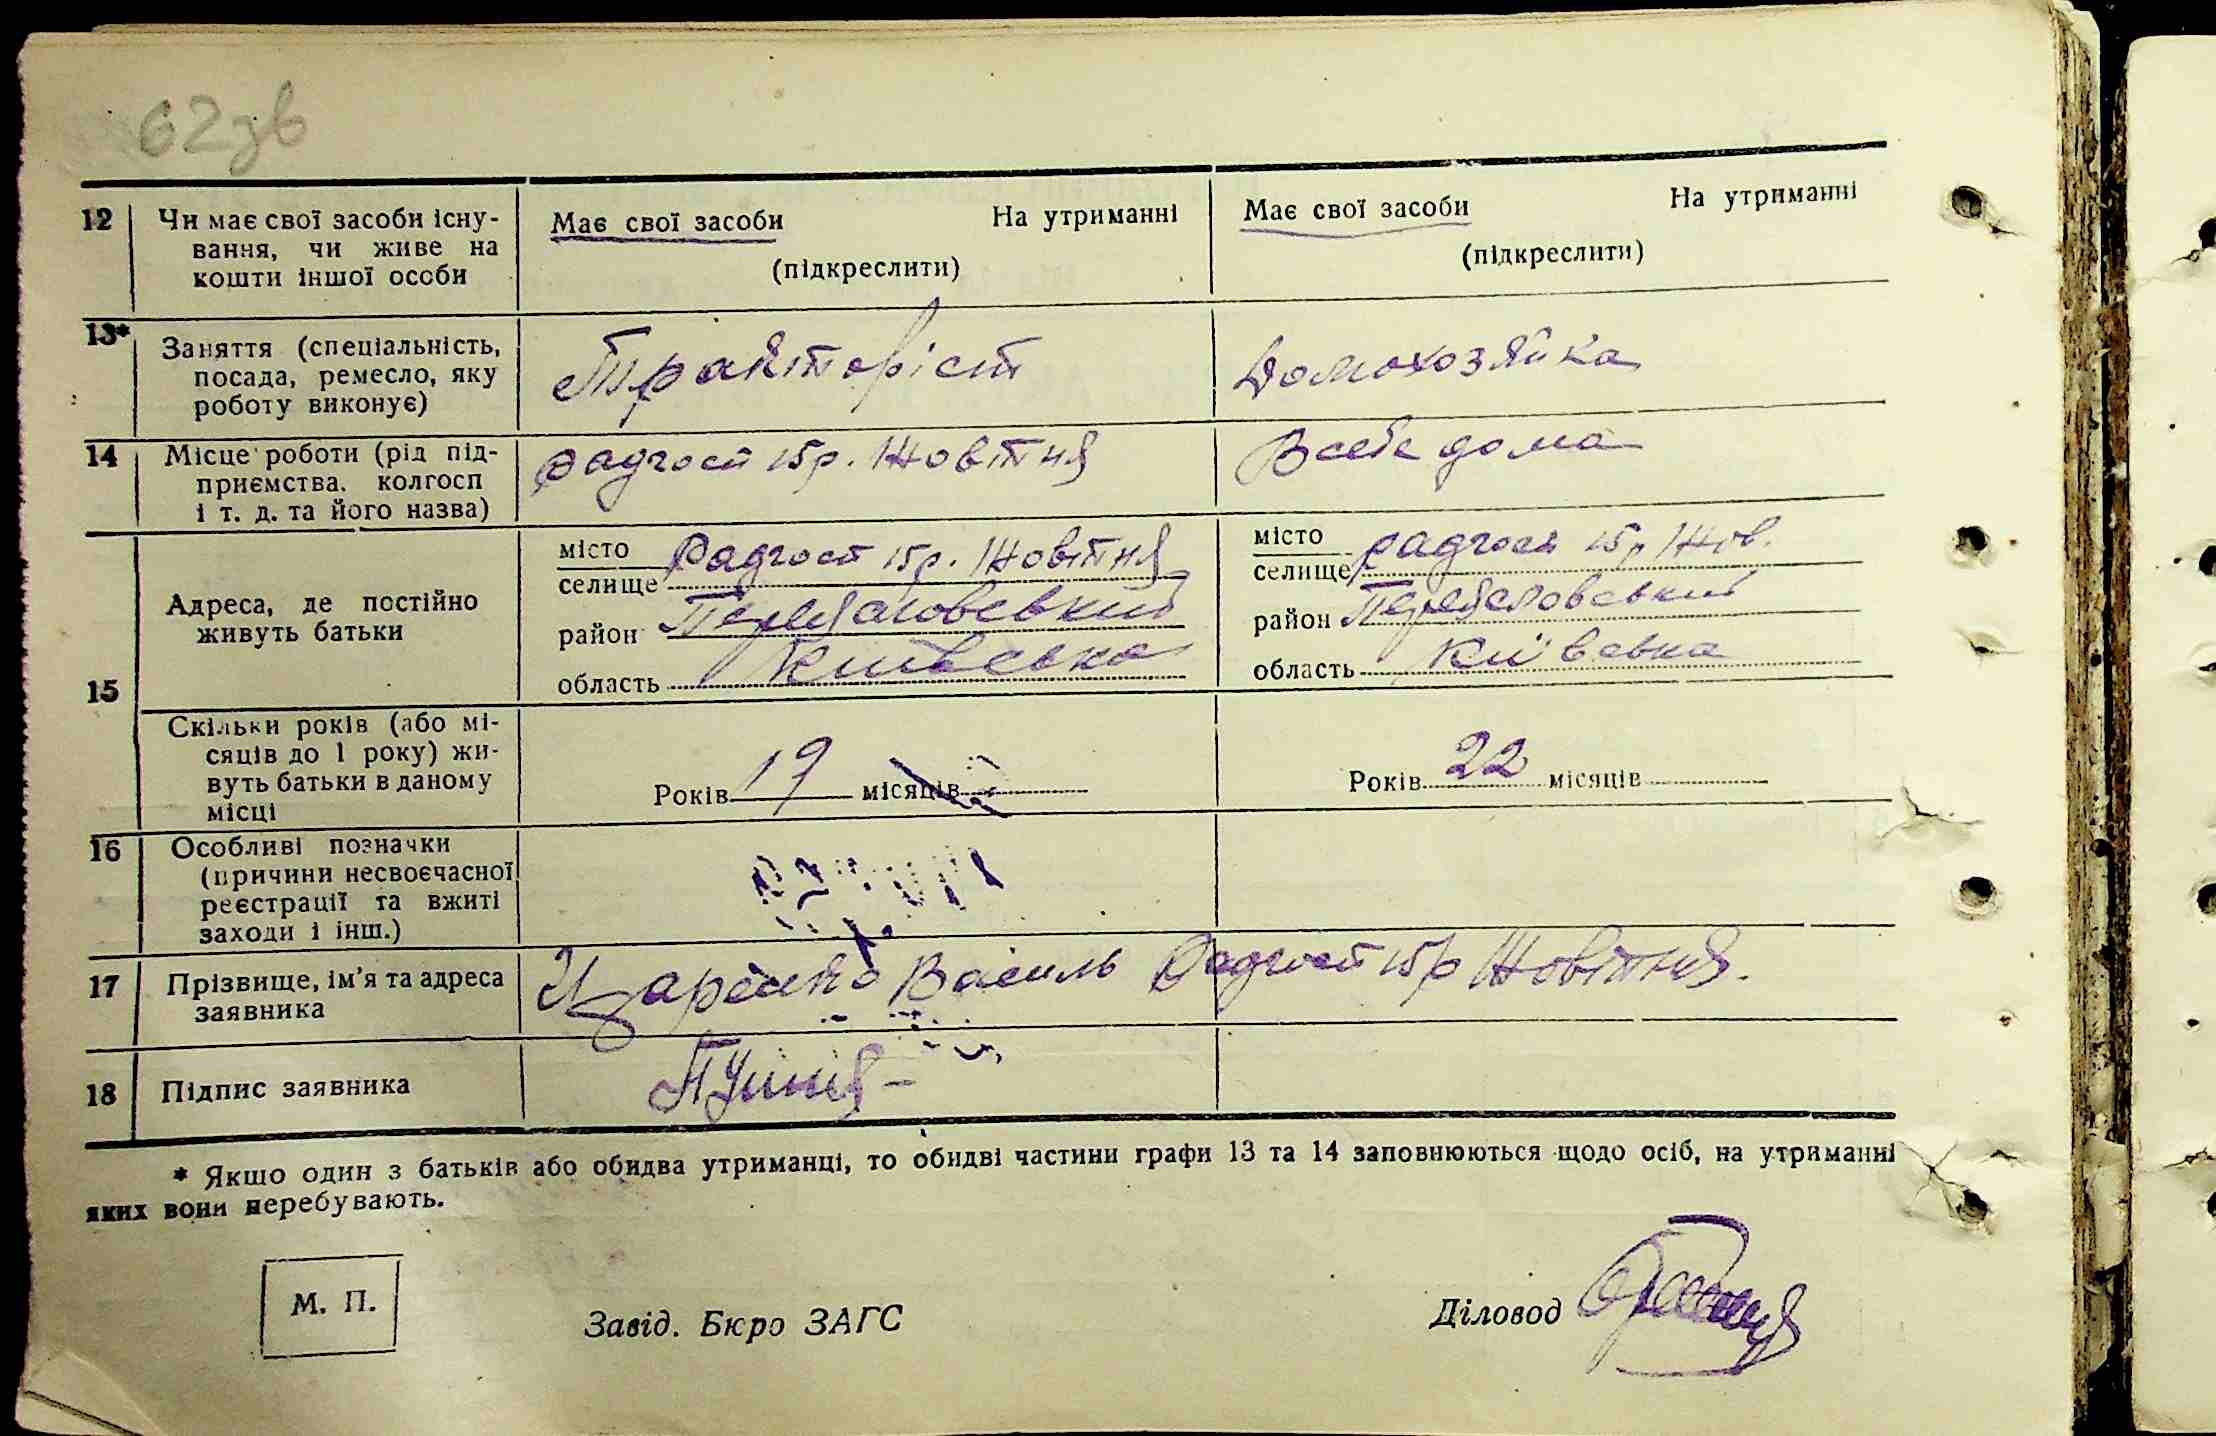 62зв
12 Чи має свої засоби існу-
вання, чи живе на
кошти іншої особи
Має свої засоби На утриманні
(підкреслити)
Має свої засоби На утриманні
(підкреслити)
13* Заняття (спеціальність,
посада, ремесло, яку
роботу виконує)
Трактористь
Домохозяйка
14 Місце роботи (рід під-
приємства, колгосп
і т. д. та його назва)
Радгосп 15 р. Жовтня
В себе дома
15 Адреса, де постійно
живуть батьки
місто
селище Радгосп 15 р. Жовтня
район
область Київська
місто
селище радгосп 15 р Жов.
район
область Київська
Скільки років (або мі-
сяців до 1 року) жи-
вуть батьки в даному
місці
Років 19 місяців
Років 22 місяців
16 Особливі позначки
(причини несвоєчасної
реєстрації та вжиті
заходи і інш.)
17 Прізвище, ім'я та адреса
заявника
Василь Радгосп 15 р Жовтня.
18 Підпис заявника
* Якщо один з батьків або обидва утриманці, то обидві частини графи 13 та 14 заповнюються щодо осіб, на утриманні
яких вони перебувають.
М. П.
Завід. Бюро ЗАГС
Діловод